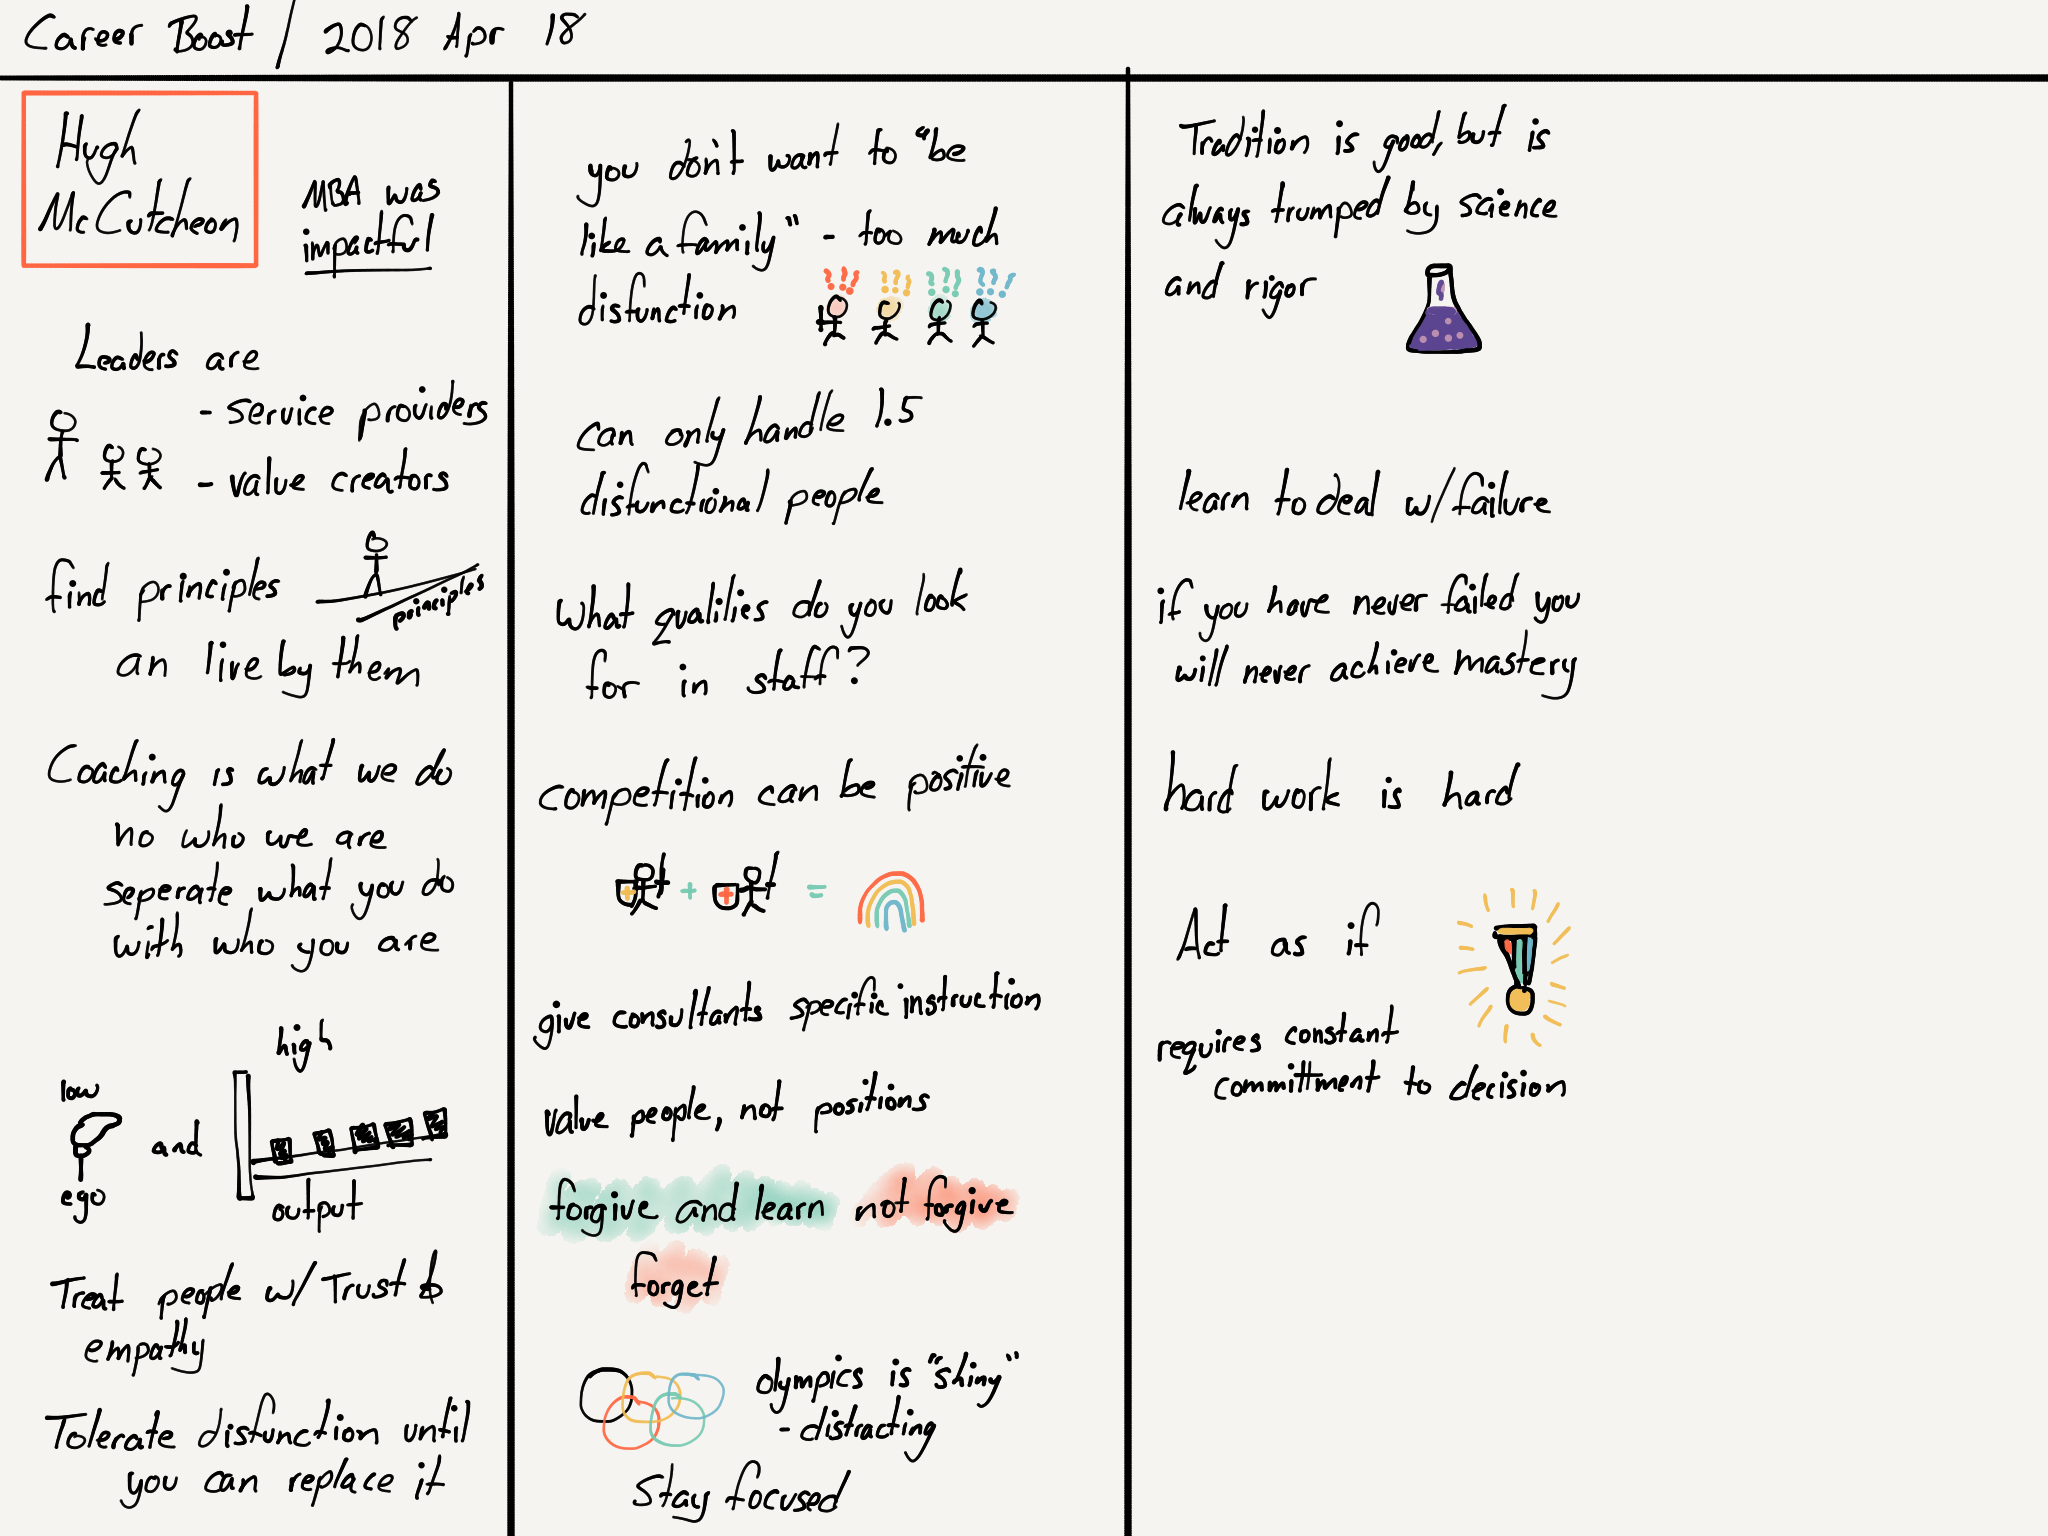 Career Boost / 2018 Apr 18
Hugh
McCutcheon
MBA was
impactful
Leaders are
- service providers
- value creators
find principles
principles
an live by them
Coaching is what we do
no who we are
seperate what you do
with who you are
high
low
and
ego
output
Treat people w/ Trust &
empathy
Tolerate disfunction until
you can replace it
you don't want to "be
like a family" - too much
disfunction
can only handle 1.5
disfunctional people
What qualities do you look
for in staff?
competition can be positive
+ =
give consultants specific instruction
value people, not positions
forgive and learn not forgive
forget
olympics is "shiny"
- distracting
Stay focused
Tradition is good, but is
always trumped by science
and rigor
learn to deal w/ failure
if you have never failed you
will never achieve mastery
hard work is hard
Act as if
requires constant
committment to decision